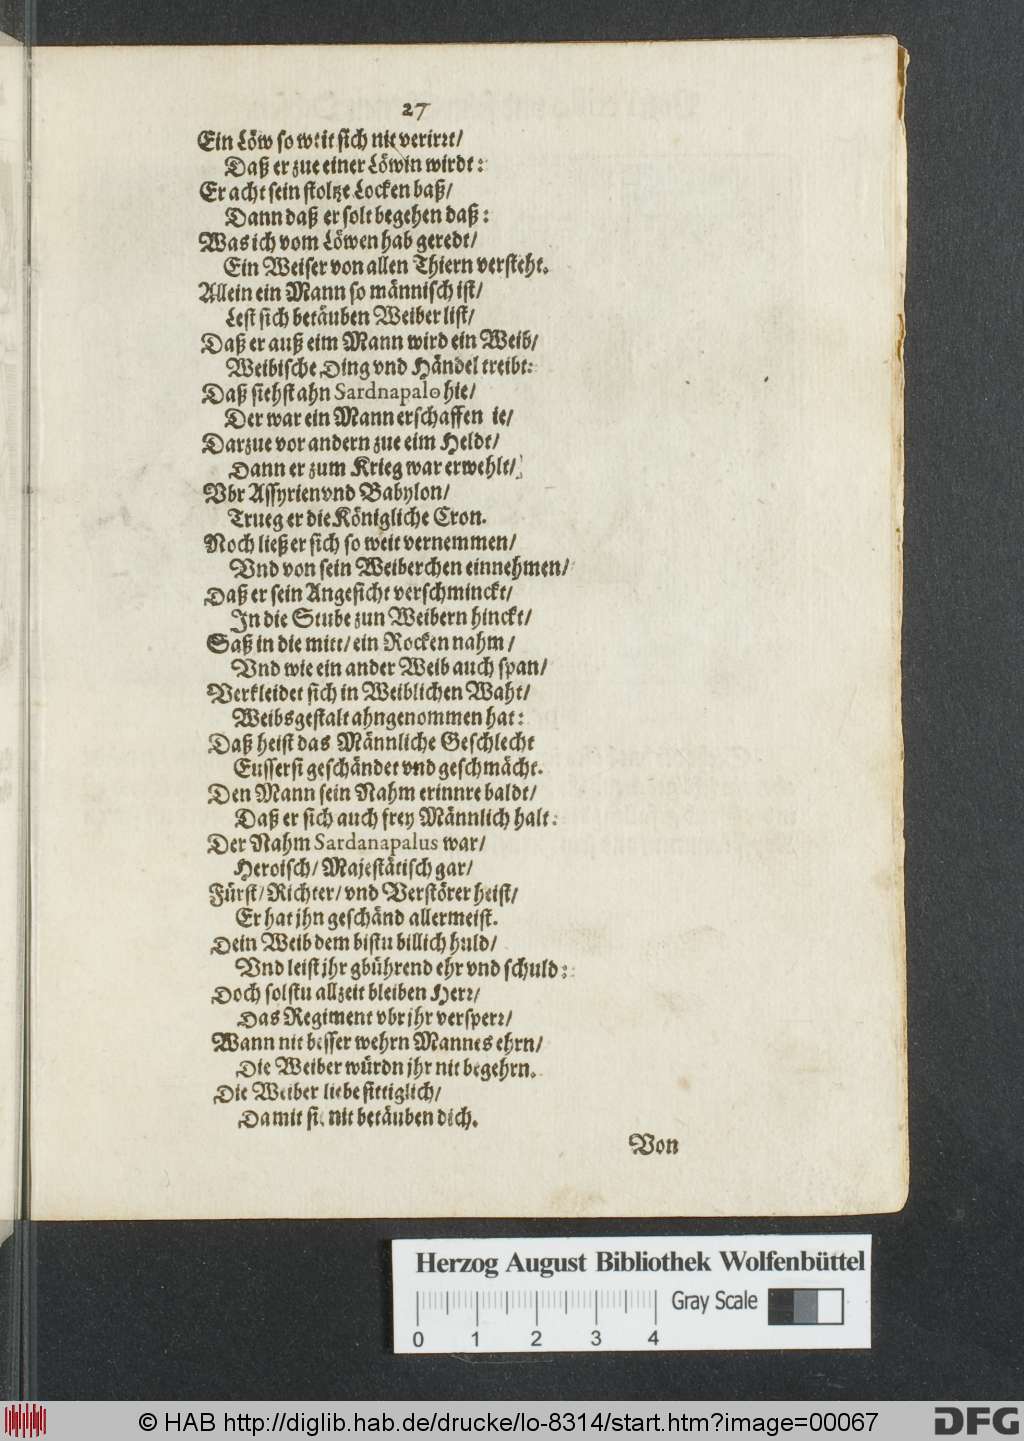 27
Ein Löw so weit sich nit verirrt/
Daß er zue einer Löwin wirdt:
Er acht sein stoltze Locken baß/
Dann daß er solt begehen daß:
Was ich vom Löwen hab geredt/
Ein Weiser von allen Thiern versteht.
Allein ein Mann so männisch ist/
Lest sich betäuben Weiber list/
Daß er auß eim Mann wird ein Weib/
Weibische Ding vnd Händel treibt:
Daß siehst ahn Sardnapalo hie/
Der war ein Mann erschaffen ie/
Darzue vor andern zue eim Heldt/
Dann er zum Krieg war erwehlt/
Vbr Assyrien vnd Babylon/
Trueg er die Königliche Cron.
Noch ließ er sich so weit vernemmen/
Vnd von sein Weiberchen einnehmen/
Daß er sein Angesicht verschminckt/
In die Stube zun Weibern hinckt/
Saß in die mitt/ ein Rocken nahm/
Vnd wie ein ander Weib auch span/
Verkleidet sich in Weiblichen Waht/
Weibsgestalt ahngenommen hat:
Daß heist das Männliche Geschlecht
Eusserst geschändet vnd geschmächt.
Den Mann sein Nahm erinnre baldt/
Daß er sich auch frey Männlich halt:
Der Nahm Sardanapalus war/
Heroisch/ Majestätisch gar/
Fürst/ Richter/ vnd Verstörer heist/
Er hat jhn geschänd allermeist.
Dein Weib dem bistu billich huld/
Vnd leist jhr gbührend ehr vnd schuld:
Doch solstu allzeit bleiben Herr/
Das Regiment vbr jhr versperr/
Wann nit besser wehrn Mannes ehrn/
Die Weiber würdn jhr nit begehrn.
Die Weiber liebe sittiglich/
Damit sie nit betäuben dich.
Von
Herzog August Bibliothek Wolfenbüttel
Gray Scale
0 1 2 3 4
© HAB http://diglib.hab.de/drucke/lo-8314/start.htm?image=00067
DFG